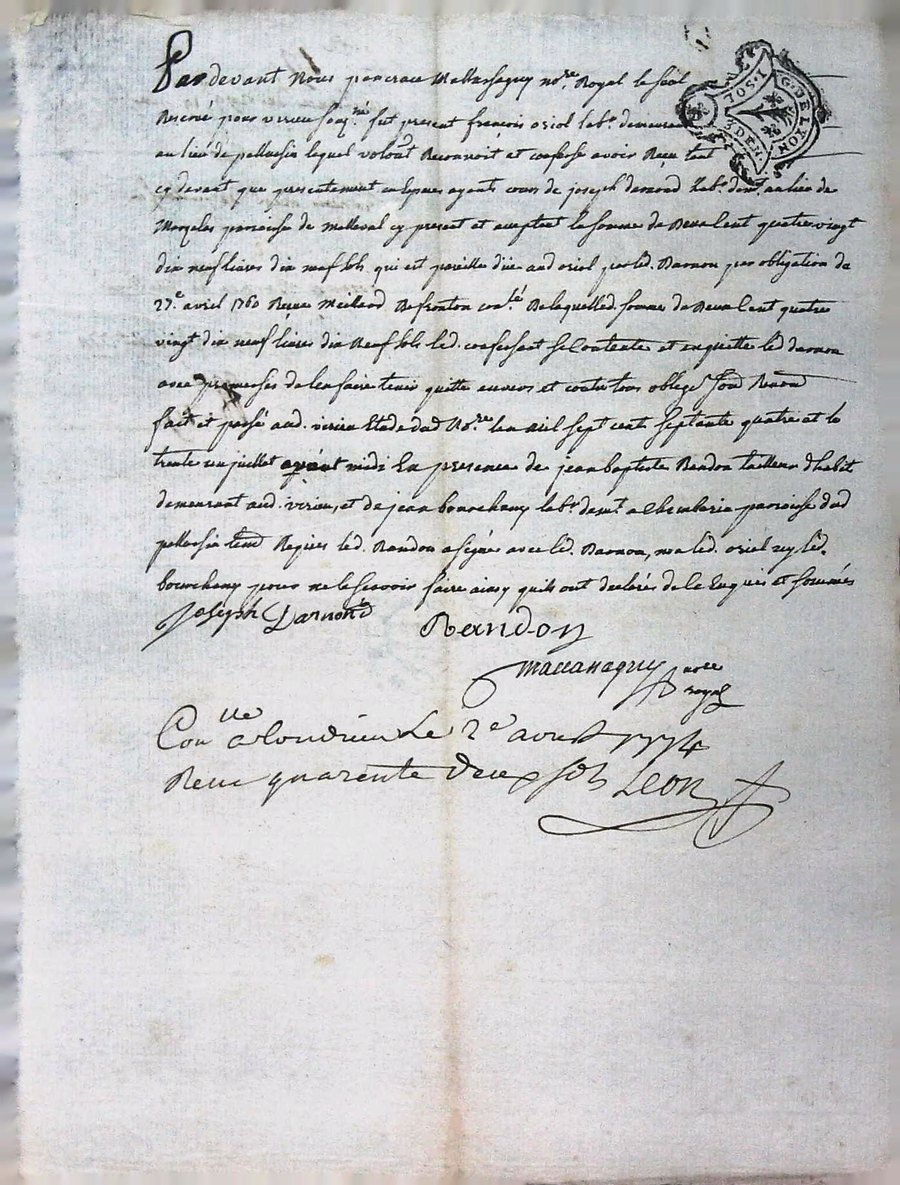 Par devant Nous pancrace Mattassaguy no.re Royal le seel
Reservé pour virieu soq.né fut present françois oriol lab.r demeurant
au lieu de pellussin lequel volon.t Reconnoit et confesse avoir Receu tant
cy devant que presentement en Especes ayants cours de joseph darnond lab.r dem.t au lieu de
paroisse de Malleval cy present et acceptant la somme de Deux Cent quatre vingt
dix neuf livres dix neuf sols qui est pareille due aud oriol par led. Darnon par obligation du
27.e avril 1760 Receue con.lé De laquelled. somme de Deux Cent quatre
vingt dix neuf livres dix Neuf sols led. confessant se Contente et en quitte led darnon
avec promesses de len faire tenir quitte envers et contre tous oblige.
fait et passé aud. virieu Etude dud No.re lan Mil sept cent septante quatre et le
trente un juillet avant midi En presence de jean baptiste Randon tailleur d'habit
demeurant aud. virieu, et de jean bourchany lab.r dem.t a paroisse dud
pellussin tem Requis led. Randon a signé avec led. Darnon, non led. oriol ny led.
bourchany pour ne le scavoir faire ainsy quils ont declarés de ce Enquis et sommés
Joseph Darnond
Randon
mattassaguy no.re
royal
Con.lle a Condrieu Le 2e aoust 1774
Receu quarente deux sols Leon
G. DE LYON
1. SOL